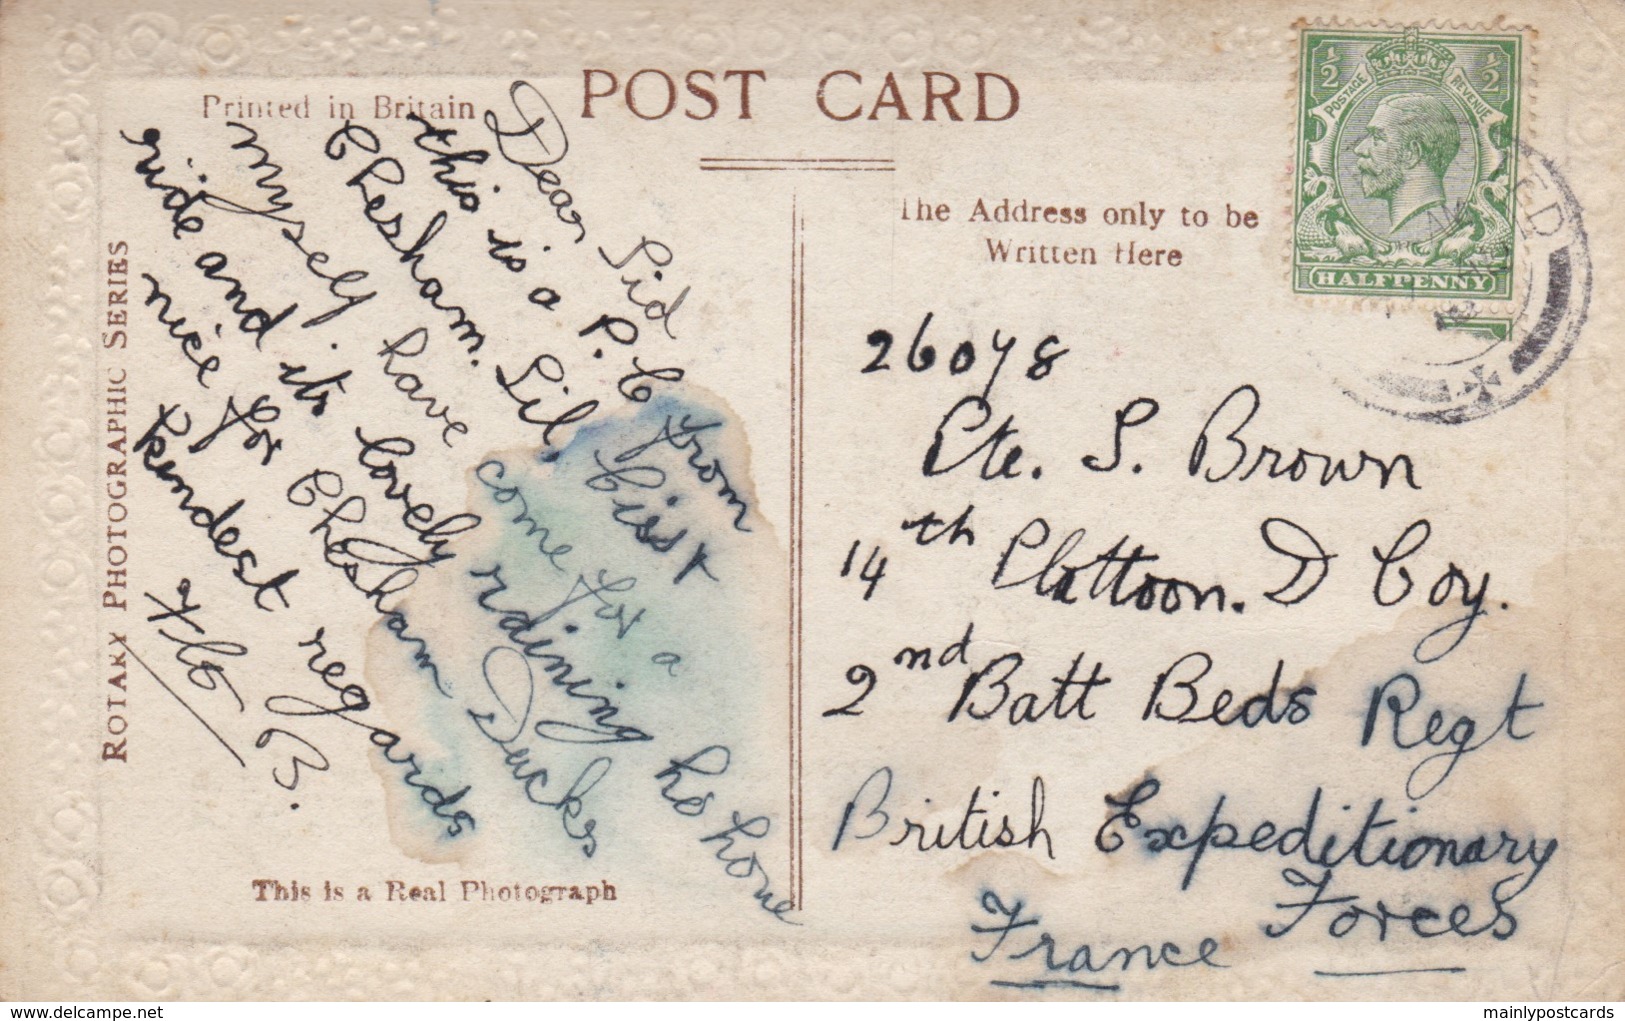 POST CARD
Printed in Britain
The Address only to be
Written Here
ROTARY PHOTOGRAPHIC SERIES
This is a Real Photograph
½ ½
POSTAGE REVENUE
HALFPENNY
Dear Sid
this is a P.C from
Chesham. Lil, Ciss &
myself have come for a
ride and its lovely raining he home
nice for Chesham Ducks
kindest regards
B.
26078
Pte. S. Brown
14th Plattoon. D Coy.
2nd Batt Beds Regt
British Expeditionary
Forces
France
mainlypostcards
www.delcampe.net